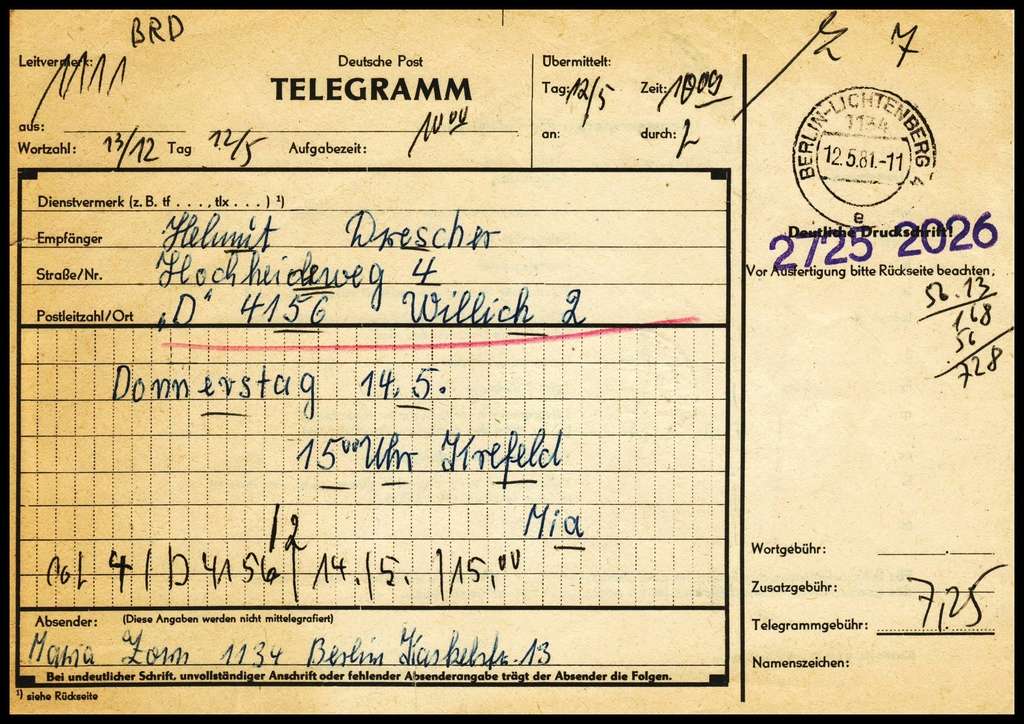 BRD
Leitvermerk: 1111
Deutsche Post
TELEGRAMM
aus:
Wortzahl: 13/12 Tag 12/5 Aufgabezeit: 10 00
Übermittelt:
Tag: 12/5 Zeit: 10 09
an: durch:
7
BERLIN-LICHTENBERG 4
1134
12.5.81.-11
e
Deutliche Druckschrift!
2725 2026
Vor Ausfertigung bitte Rückseite beachten.
56.13
168
56
728
Dienstvermerk (z. B. tf . . . ., tlx . . . ) ¹)
Empfänger Helmut Drescher
Straße/Nr. Hochheideweg 4
Postleitzahl/Ort „D" 4156 Willich 2
Donnerstag 14.5.
15 00 Uhr Krefeld
Mia
/2
col 4 / D 4156 / 14./5. / 15,00
Absender: (Diese Angaben werden nicht mittelegrafiert)
Maria Zorn 1134 Berlin Kaskelstr. 13
Bei undeutlicher Schrift, unvollständiger Anschrift oder fehlender Absenderangabe trägt der Absender die Folgen.
¹) siehe Rückseite
Wortgebühr:
Zusatzgebühr:
Telegrammgebühr: 7,25
Namenszeichen: